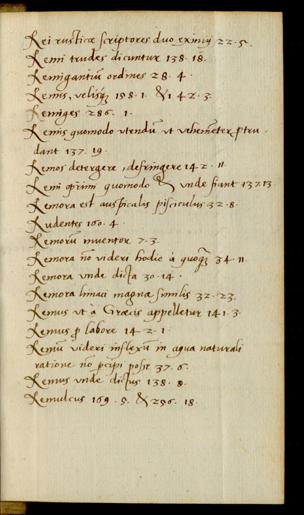 Rei rusticæ scriptores duo eximij 22. 5.
Remi trudes dicuntur 138. 18.
Remigantiũ ordines 28. 4.
Remis, velisq; 158. 1. & 142. 3.
Remiges 286. 1.
Remis quomodo utendũ ut vehemẽter ꝓtru
dant 137. 19.
Remos detergere, defringere 142. 11
Remi quomodo & unde fiant 137.13
Remora est auspicalis pisciculus 32. 8.
Rudentes 160. 4.
Remorũ inventor 7. 3.
Remora nõ videri hodie à quoq; 34. 11.
Remora unde dicta 30. 14.
Remora limaci magnæ similis 32. 23.
Remus ut a Græcis appelletur 141. 3.
Remus ꝓ labore 142. 1.
Remũ videri inflexũ in aqua naturali
ratione nõ pcipi posse 37. 6.
Remus unde dictus 138. 8.
Remulcus 169. 5. & 256. 18.